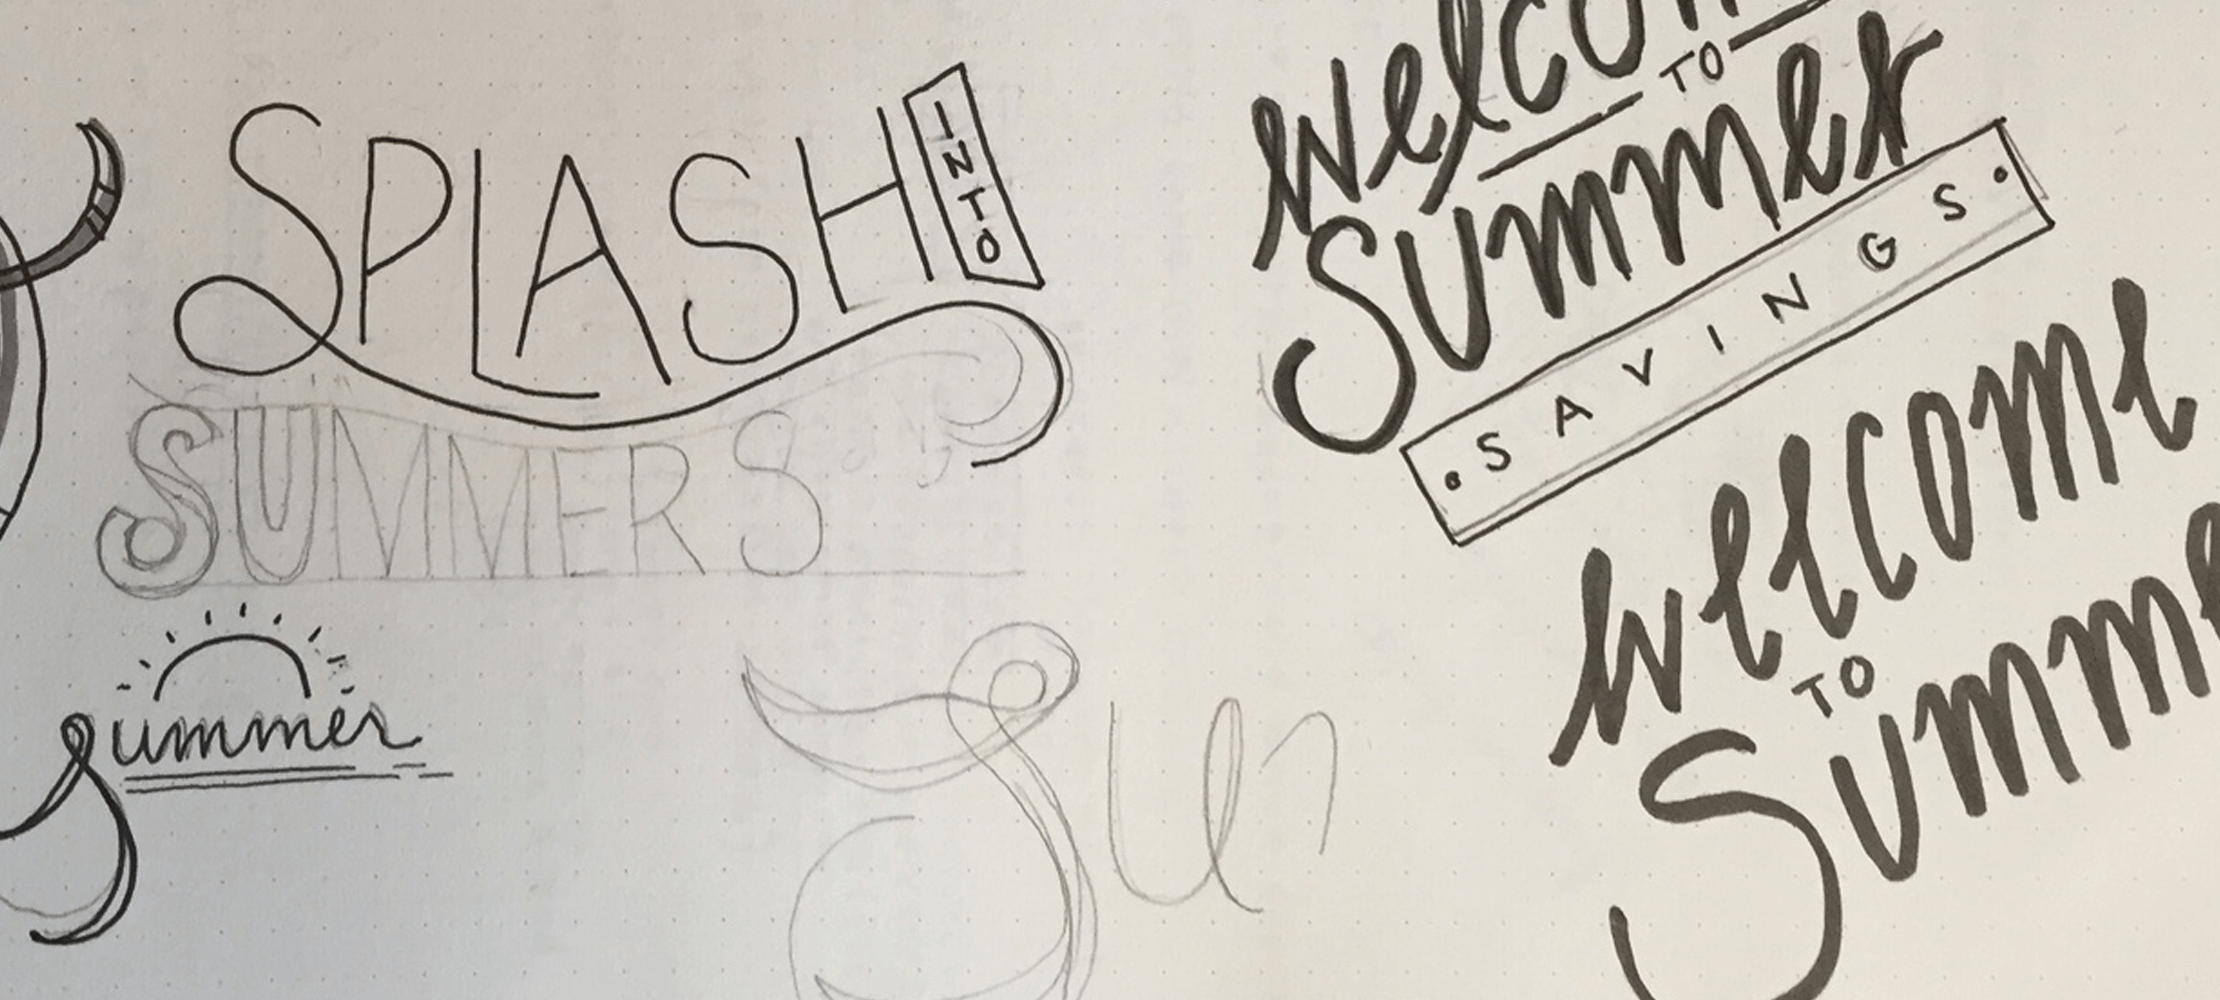 SPLASH INTO
SUMMER S
summer
Su
Welcom
TO
Summer
• SAVINGS •
Welcome
TO
Summe